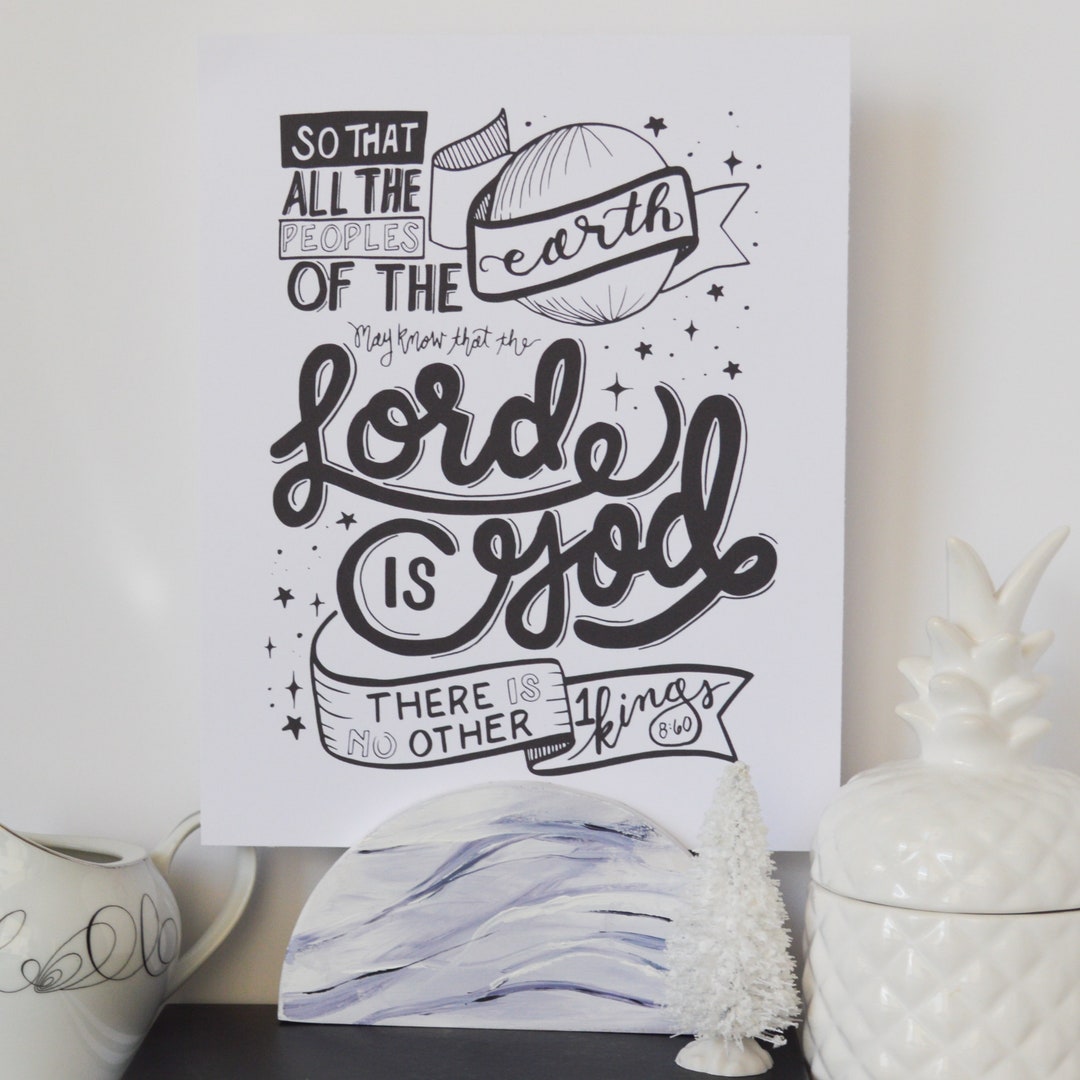 SO THAT
ALL THE
PEOPLES
OF THE
earth
May know that the
Lord
IS God
THERE IS
NO OTHER
1 kings
8:60